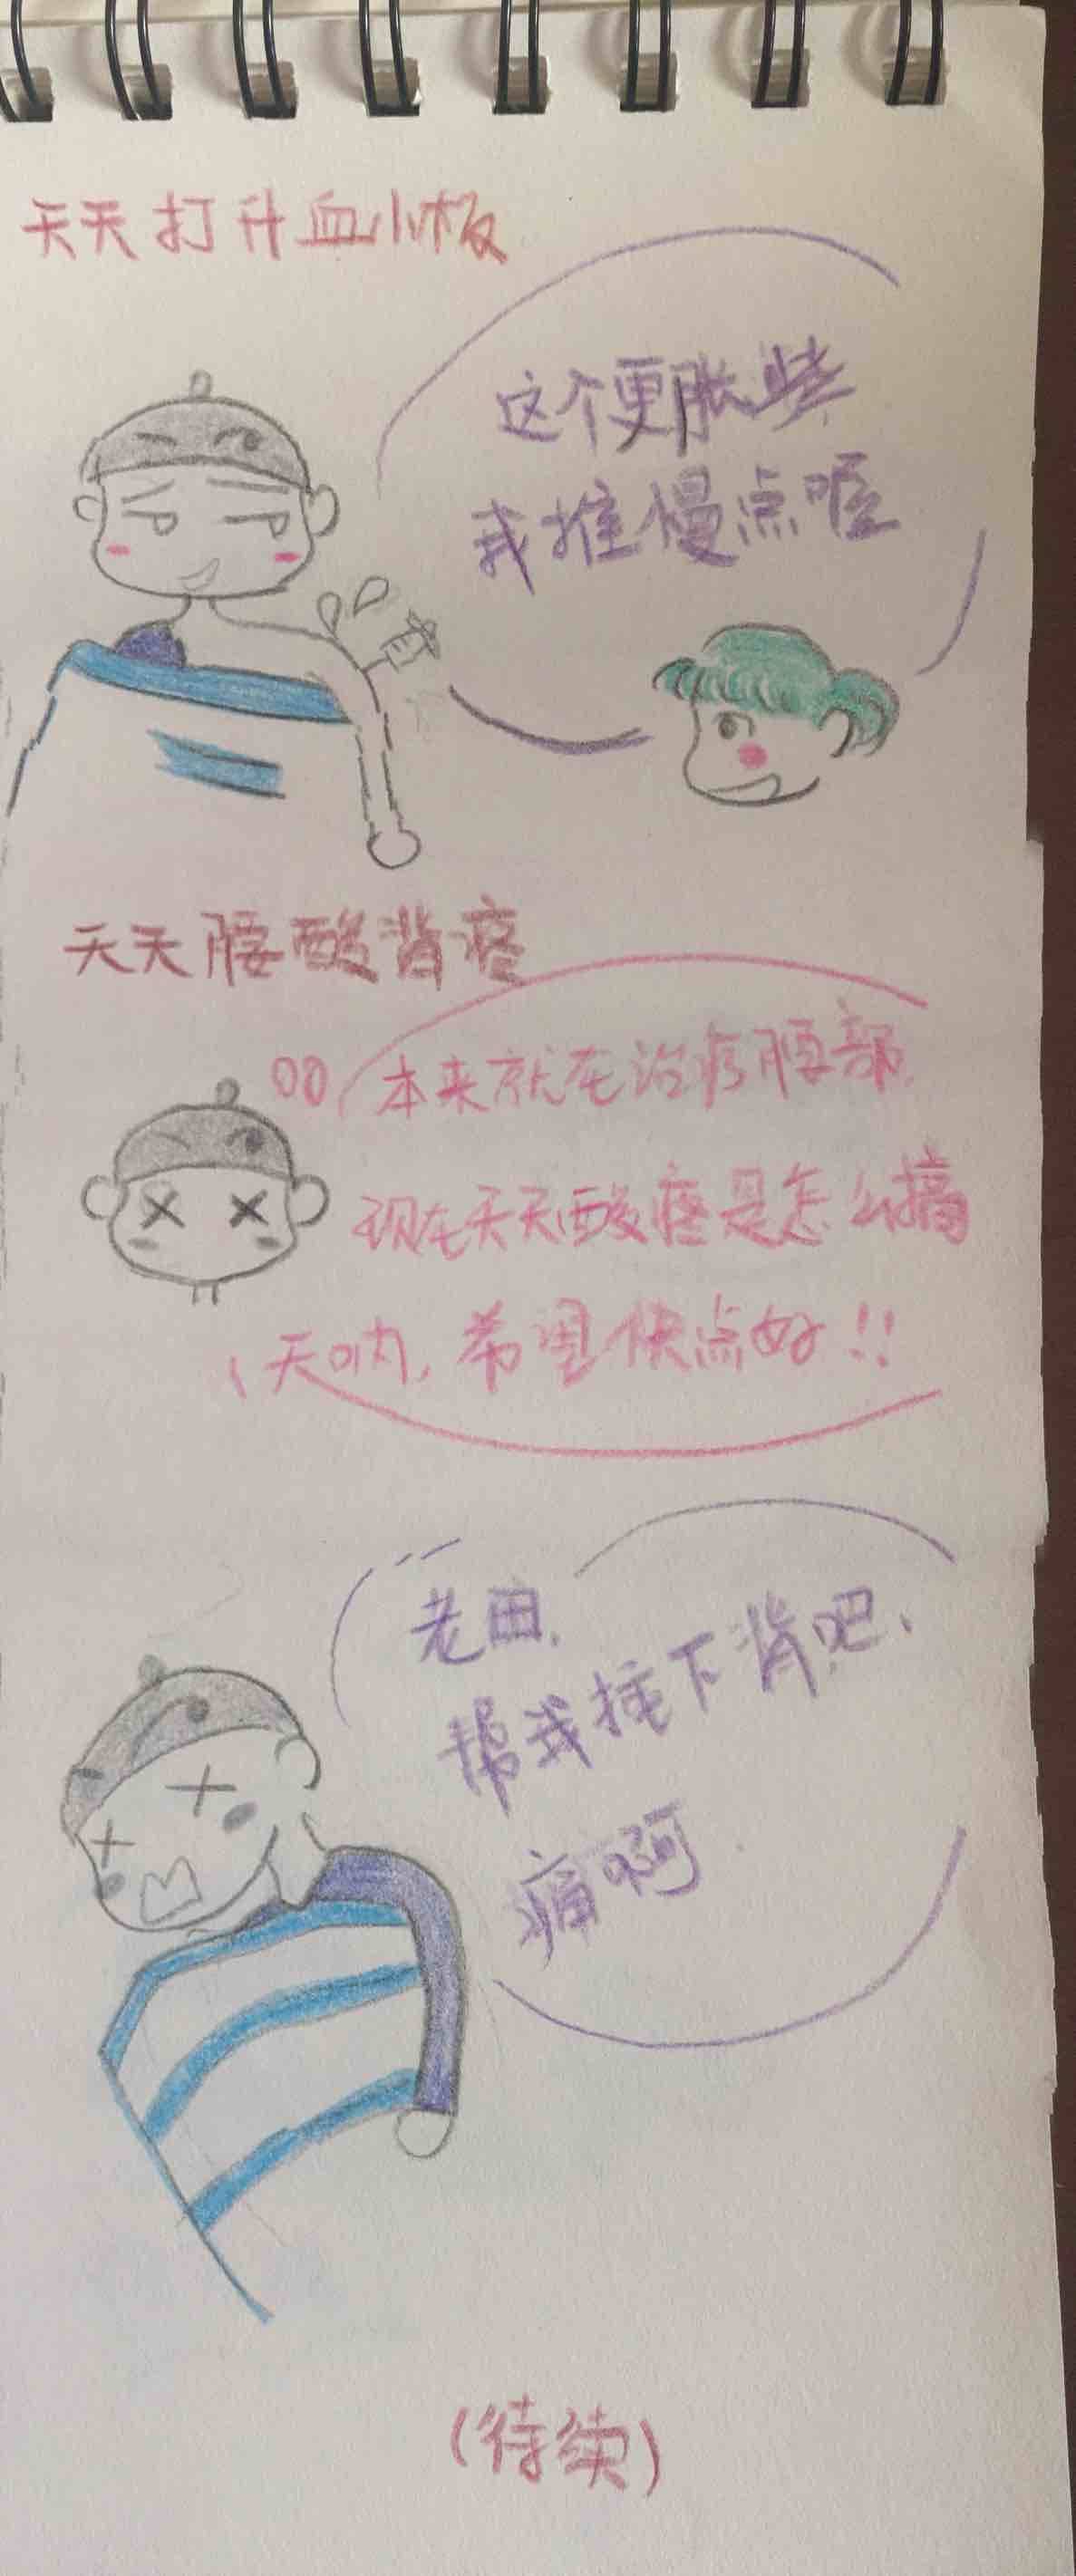 天天打升血小板
这个更胀些
我推慢点喔
天天腰酸背疼
本来就在治疗腰部
现在天天酸疼是怎么搞
天呐,希望快点好!!
老田,
帮我捶下背吧、
痛啊
(待续)